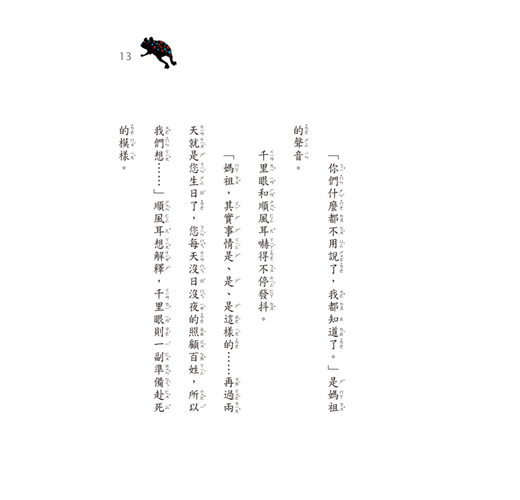 13
「你們什麼都不用說了，我都知道了。」是媽祖
的聲音。
千里眼和順風耳嚇得不停發抖。
「媽祖，其實事情是、是、是這樣的……再過兩
天就是您生日了，您每天沒日沒夜的照顧百姓，所以
我們想……」順風耳想解釋，千里眼則一副準備赴死
的模樣。